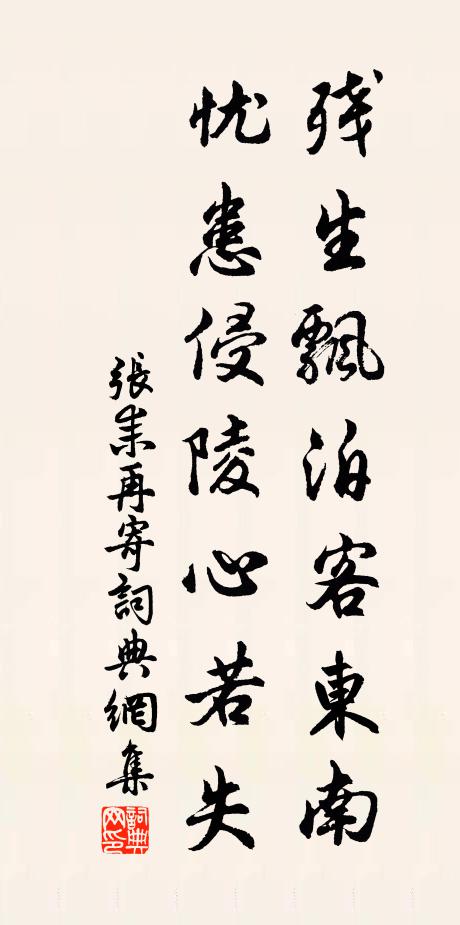 残生飄泊客東南
忧患侵陵心若失
張耒再寄詞典網集
詞典網印